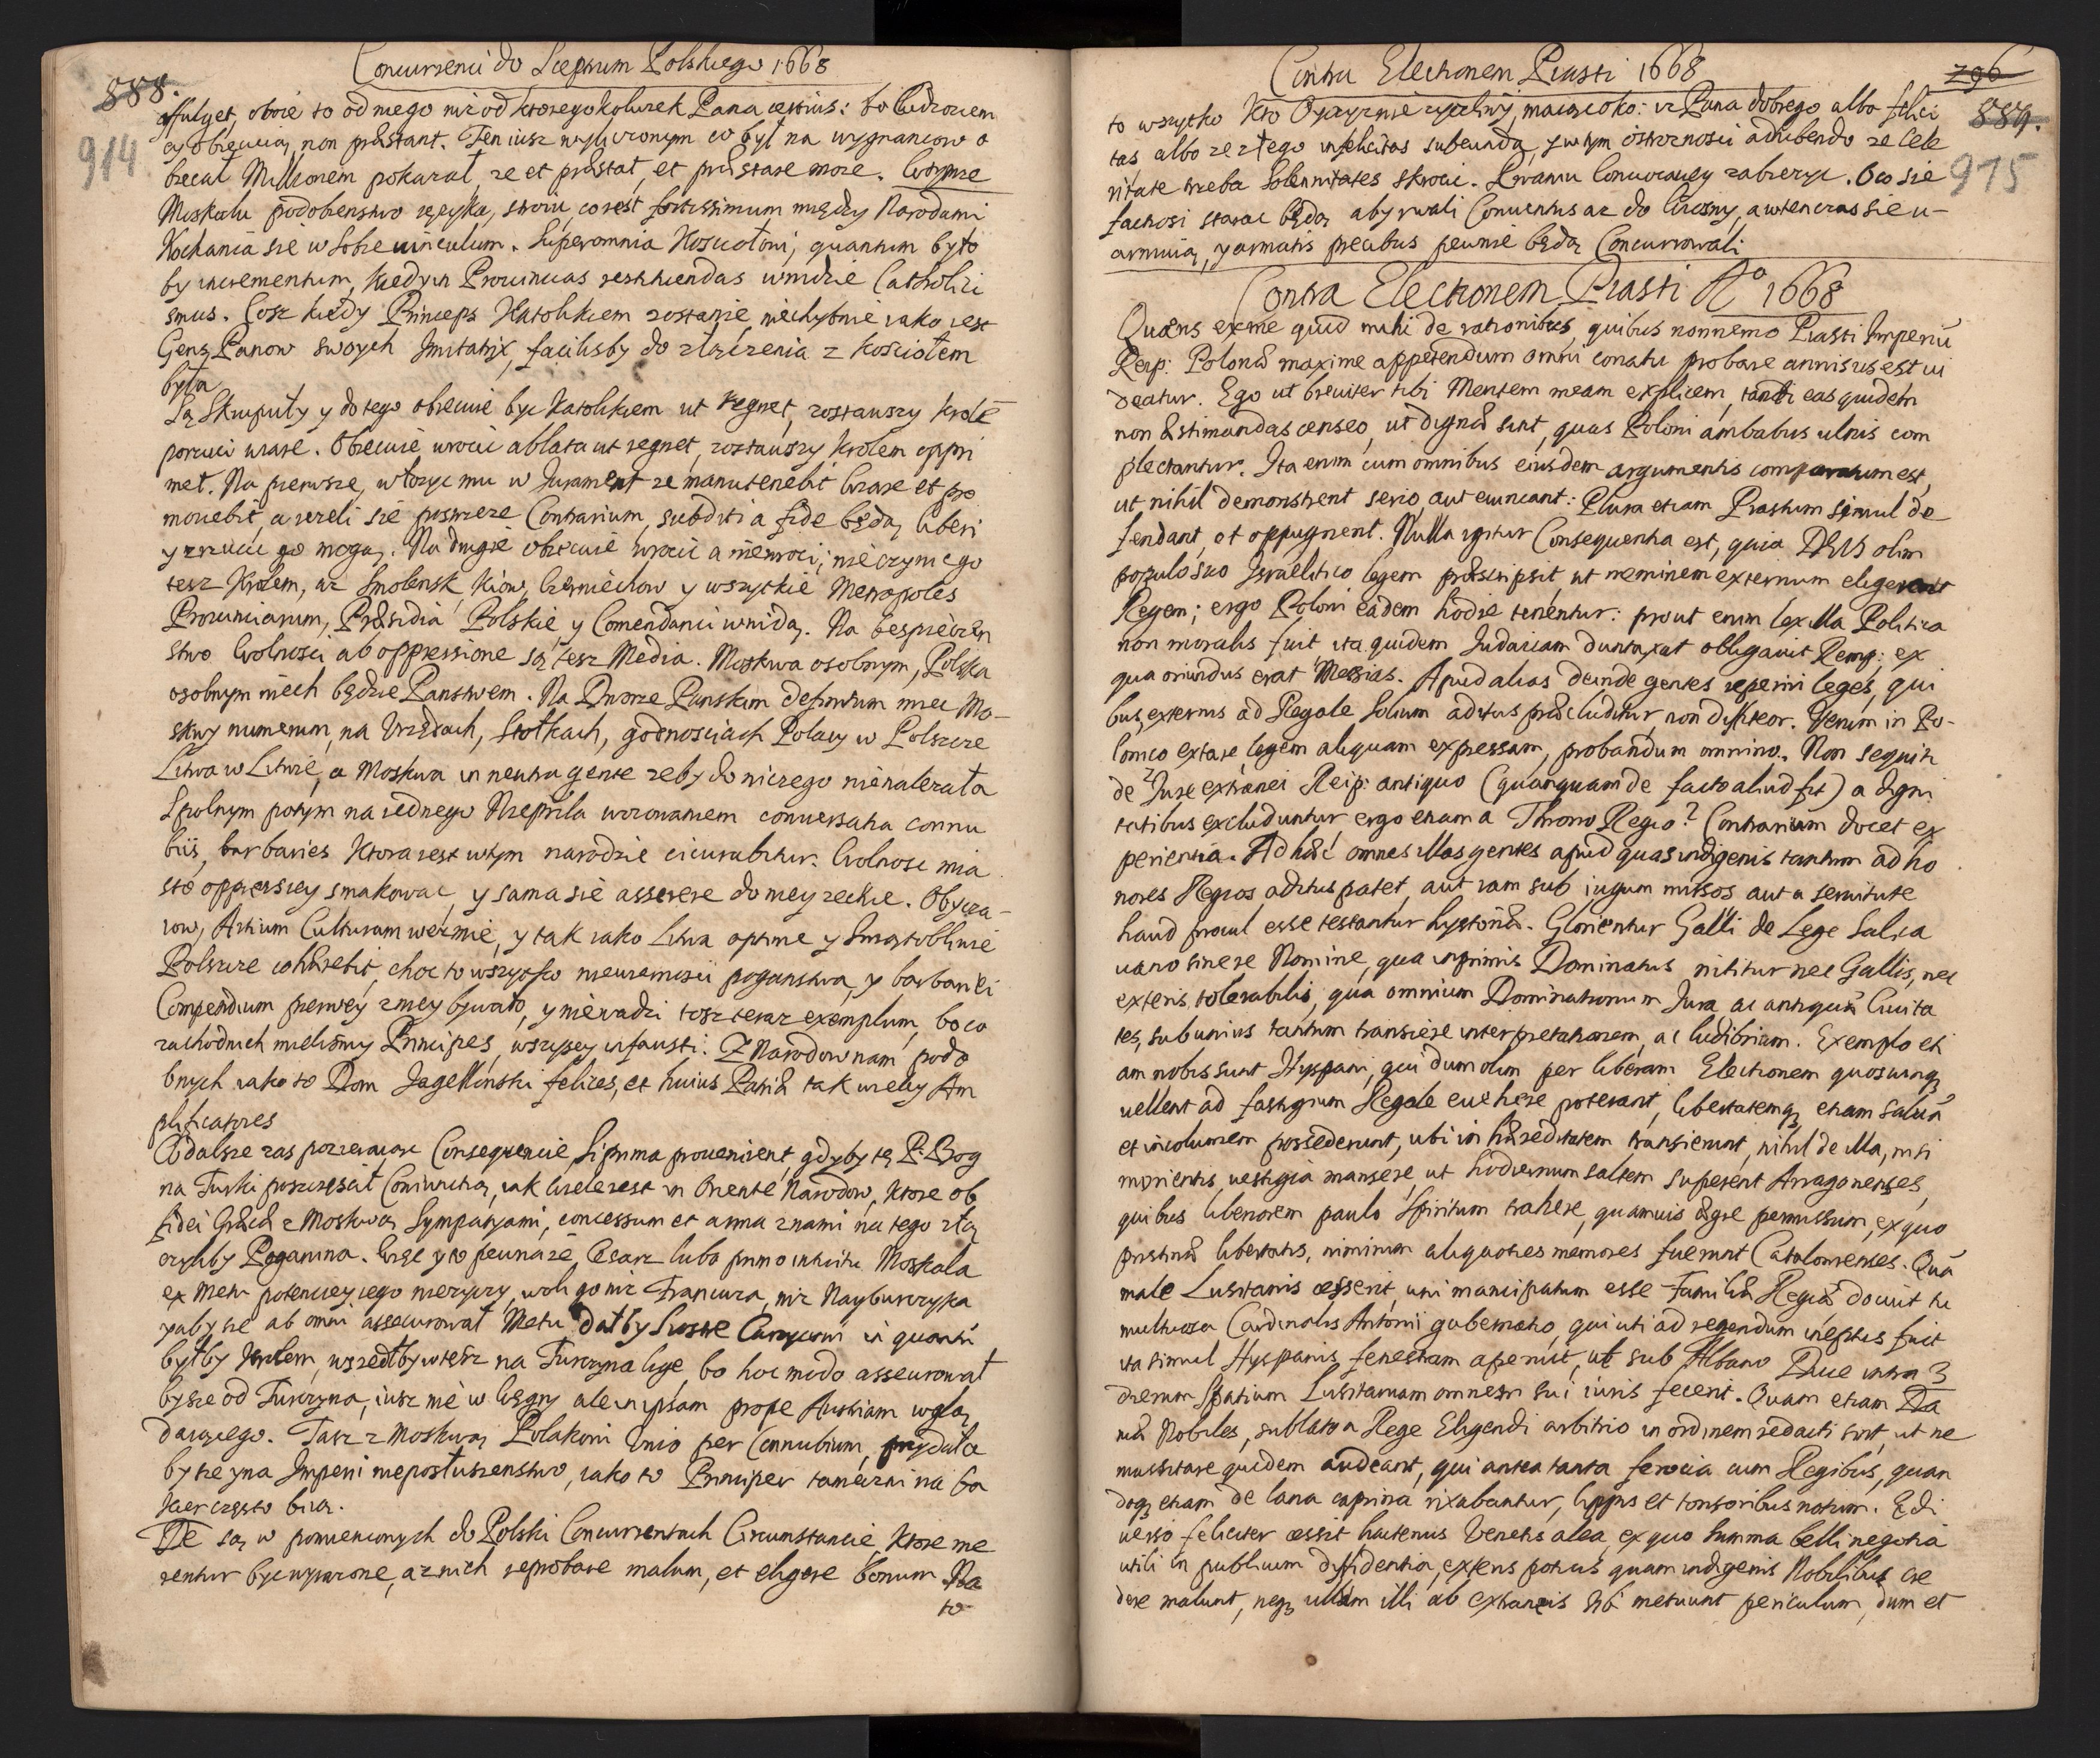 Concurrenci do Sceptrum Polskiego 1668
888.
914
affulget, oboie to od niego niż od ktoregokolwiek Pana certius: bo Cudzoziem
cy obiecuią, non præstant. Ten iusz wyliczonym co był na wygnancow o
biecał Millionem pokazał, ze et præstat, et præstare może. Wozmże
Moskalu podobenstwo ięzyka, stroiu, co iest fortissimum między Narodami
Kochania się w Sobie vinculum. Super omnia Kosciołowi, quantum było
by incrementum, kiedy in Prouincias restituendas wnidzie Catholici
smus. Cosz kiedy Princeps Katolikiem zostanie niechybnie iako iest
Gens Panow swoych Imitatrix, facilisby do złączenia z Kosciołem
była
Są Skrupuły y do tego obiecuie byc Katolikiem ut regnet, zostawszy Krolē
porzuci wiarę. Obiecuie wrocic ablata ut regnet, zostawszy Krolem oppri
met. Na pierwsze, włozyc mu w Jurament ze manutenebit wiarę et pro
mouebit, a iezeli się postrzeze Contrarium, subditi a fide będą liberi
y zrzucic go mogą. Na drugie obiecuie wrocic a niewroci; nieczynic go
tesz Krolem, az Smolensk, Kiow, Czerniechow y wszytkie Metropoles
Prouinciarum, Præsidia Polskie y Comendanci wnidą. Na bespieczen
stwo Wolnosci ab oppressione są tesz Media. Moskwa osobnym, Polska
osobnym niech będzie Panstwem. Na Dworze Panskim definitum miec Mo-
skwy numerum, na Vrzędach, Stołkach, godnosciach Polacy w Polszcze
Litwa w Litwie, a Moskwa in neutra gente zeby do niczego nienalezała
Spolnym potym na iednego Nieprzyla woiowaniem conuersatia connu
biis, barbaries ktora iest w tym narodzie cicurabitur. Wolnosc mia
sto oppressiey smakowac, y sama się asserere do niey zechce. Obycza-
iow, Artium Culturam wezmie, y tak iako Litwa optime y Smętobliwie
Polszcze cohærebit, choc to wszytko nieuemiscii poganstwa, y barbariei
Compendium pierwey z niey bywało, y niewadzi tosz teraz exemplum, bo co
zachodnich mielismy Principes, wszyscy infausti. Z Narodow nam podo
bnych iako to Dom Jagellinski felices, et huius Patriæ tak wielcy Am
plificatores
Co dalsze zas pozieraiąc Consequencie, Si prima prouenirent, gdyby tę P. Bog
na Turki poszczęscił Coniunctią, iak wiele iest in Oriente Narodow, ktore ob
fidei Græcæ z Moskwą Sympatyami, concessum et arma z nami na tego złą
czyliby Poganina. Więc y to pewna ze Cesarz lubo primo intuitu Moskala
ex Metu potenciey iego nierzyczy, woli go niz Francuza, niz Nayburczyka
yaby się ab omni assecurował Metu dałby Siostrę Carycowi ū quanti
byłby Krolem, wszedłby w tesz na Turczyna ligę, bo hoc modo assecurował
by się od Turczyna, iusz nie w Węgry ale in ipsam prope Austriam wglą
daiącego. Tasz z Moskwą Polakow Vnio per Connubium, przydała
by się yna Imperii nieposłuszenstwo, iako to Princeper tamecznina Ba
kier często biią.
Te są w pomienionych do Polski Concurrentach Circumstancie, ktore me
rentur byc uwazone, a z nich reprobare malum, et eligere bonum Na
to

Contra Electionem Piasti 1668
296
889.
915
to wszytko kto Oyczyznie zyczliwy, maiąc oko: iz Pana dobrego albo felici
tas albo ze złego infelicitas subeunda, y w tym ostroznosci adhibendo ze Cele
ritate trzeba Solennitates skrocic. Prawu Conuocacyey zabiezyc. Oco się
factiosi starac będą aby rwali Conuentus az do Wiosny, a wtenczas się u-
armuią, y armatis precibus pewnie będą Concurrowali
Contra Electionem Piasti Aº 1668
Quæris ex me quid mihi de rationibus, quibus nonnemo Piasti Imperiū
Reip: Polonæ maxime appetendum omni conatu probare annisus est ui
deatur. Ego ut breuiter tibi Mentem meam explicem, tanti eas quidem
non æstimandas censeo, ut dignæ sint, quas Poloni ambabus ulnis com
plectantur. Ita enim cum omnibus eiusdem argumentis comparatum est,
ut nihil demonstrent serio, aut euincant: Plura etiam Piastum simul de
fendant, et oppugnent. Nulla igitur Consequentia est, quia DEUS olim
populo suo Israelitico legem præscripsit, ut neminem externum eligerent
Regem; ergo Poloni eadem hodie tenentur: prout enim lex illa Politica
non moralis fuit ita quidem Judaicam duntaxat obligauit Remp: ex
qua oriundus erat Messias. Apud alias deinde gentes reperiri leges, qui
bus, externis ad Regale Solium aditus præcluditur, non diffiteor. Verum in Po-
lonico extare legem aliquam expressam, probandum omnino. Non sequitur
de Jure extranei Reip: antiquo (quanquam de facto aliud fit) a digni
tatibus excluduntur ergo etiam a Throno Regio? Contrarium docet ex
perientia. Ad hæc omnes illas gentes apud quas indigenis tantum ad ho
nores Regios aditus patet, aut iam sub iugum missos aut a seruitute
haud procul esse testantur hystoriæ. Glorientur Galli de Lege Salica
uano sine re Nomine, qua inprimis Dominatus nititur nec Gallis, nec
exteris tolerabilis, qua omnium Dominationum Jura, ac antiquæ Ciuita
tes, sub unius tantum transiere interpretationem, ac ludibrium. Exemplo eti
am nobis sunt Hyspani, qui dum olim per liberam Electionem quoscunq
uellent ad fastigium Regale euehere poterant, libertatemq etiam saluā
et incolumem possederunt, ubi in hæreditatem transierunt, nihil de illa, nisi
morientis uestigia mansere, ut hodiernum saltem Superent Arragonenses,
quibus liberiorem paulo Spiritum trahere, quamuis ægre permissum, ex quo
pristinæ libertatis, nimirum aliquoties memores fuerunt Catalonienses. Quā
male Lusitanis cesserit, uni mancipatum esse Familiæ Regiæ docuit tu
multuosa Cardinalis Antonii gubernatio, qui uti ad regendum ineptus fuit
ita simul Hyspanis fenestram aperuit, ut sub Albano Duce intra 3
dierum Spatium Lusitaniam omnem sui iuris fecerit. Quam etiam Da
niæ Nobiles, sublato a Rege Eligendi arbitrio in ordinem redacti sint, ut ne
mussitare quidem audeant, qui antea tanta ferocia cum Regibus, quan
doq etiam de lana caprina rixabantur, lippis et tonsoribus notum. E di
uerso feliciter cessit hactenus Venetis alea, ex quo Summa belli negotia
utili in publicum diffidentia, exteris potius quam indigenis Nobilibus cre
dere malunt, neq ullum illi ab extraneis sibi metuunt periculum, dum et